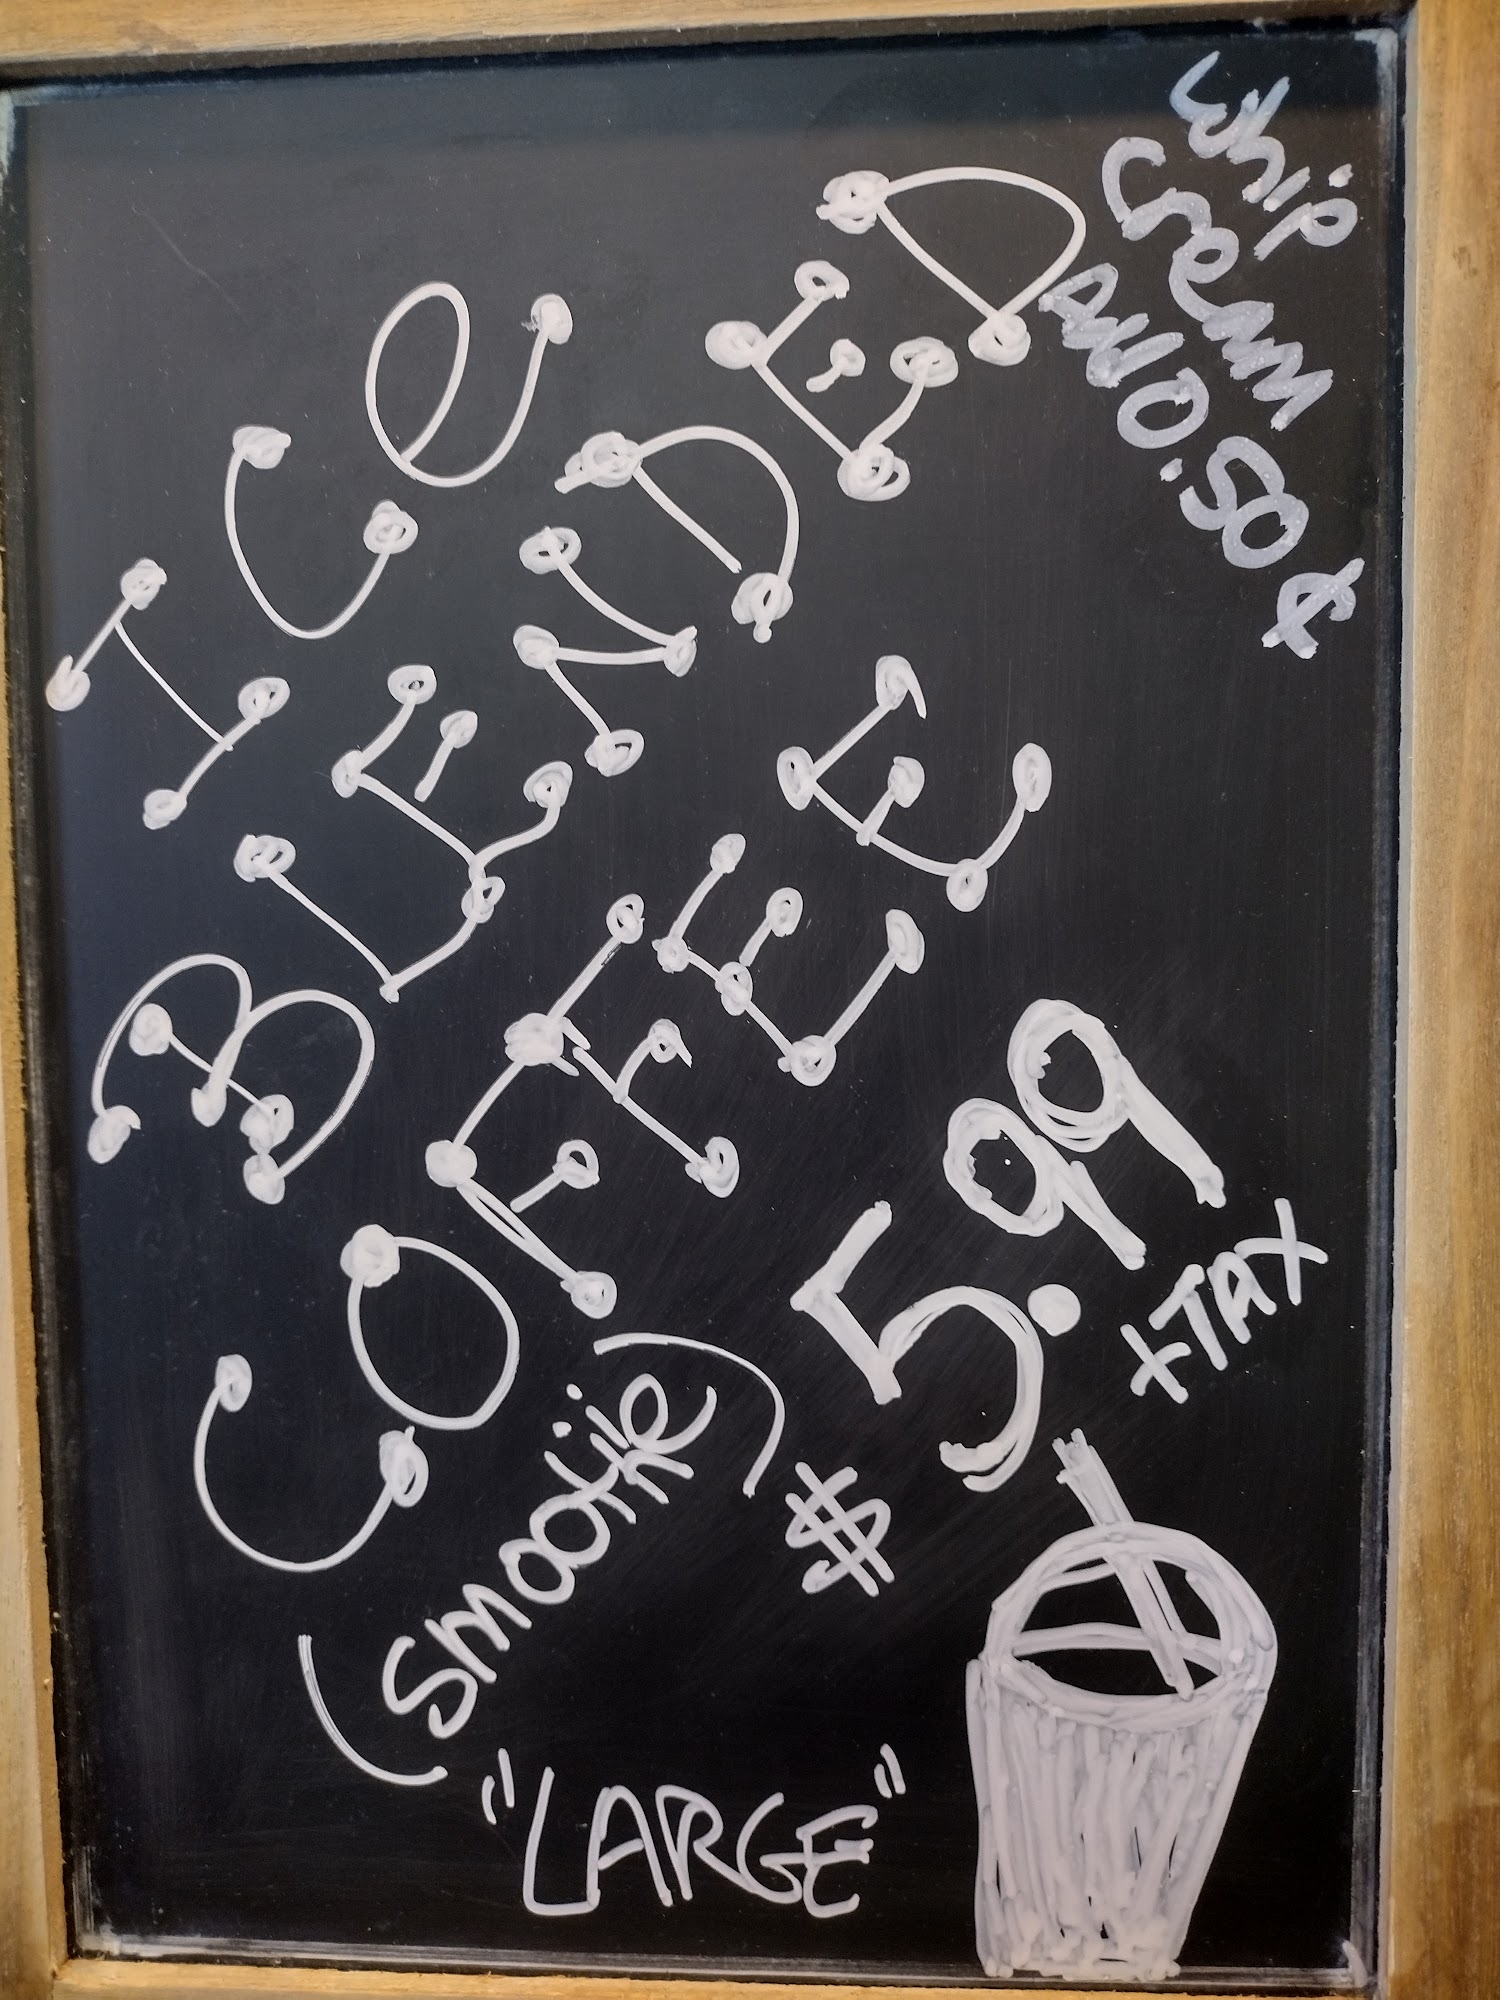 Whip
Cream
ADD 0.50 ¢
ICe
BLENDED
COFFEE
(smootie)
$5.99
+TAX
"LARGE"